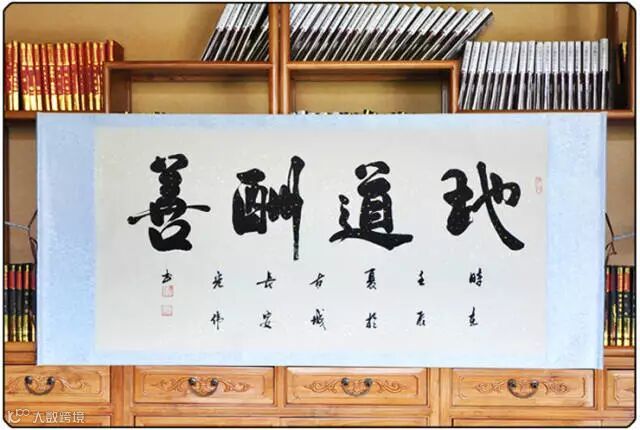 地道酬善
時在
壬辰
夏於
古城
長安
書
大数跨境